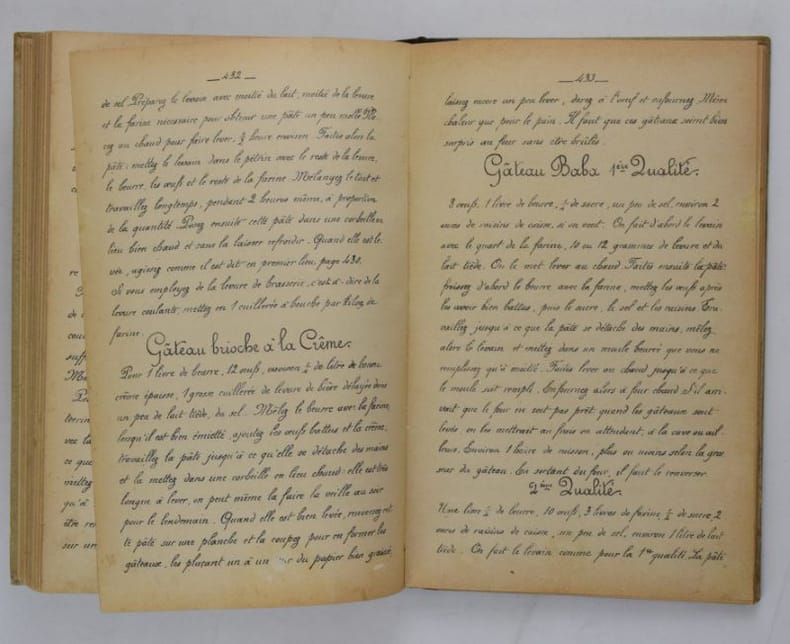 — 432 —
de sel. Préparez le levain avec moitié du lait, moitié de la levure
et la farine nécessaire pour obtenir une pâte un peu molle. Pla
cez au chaud pour faire lever, ¾ heure environ. Faites alors la
pâte: mettez le levain dans le pétrin avec le reste de la levure,
le beurre, les œufs et le reste de la farine. Mélangez le tout et
travaillez longtemps, pendant 2 heures même, à proportion
de la quantité. Posez ensuite cette pâte dans une corbeille en
lieu bien chaud et sans la laisser refroidir. Quand elle est le-
vée, agissez comme il est dit en premier lieu, page 430.
Si vous employez de la levure de brasserie, c'est-à-dire de la
levure coulante, mettez en 1 cuillerée à bouche par kilog de
farine.
Gâteau brioche à la Crême.
Pour 1 livre de beurre, 12 œufs, environ ½ de litre de bonne
crême épaisse, 1 grosse cuillerée de levure de bière délayée dans
un peu de lait tiède, du sel. Mêlez le beurre avec la farine,
lorsqu'il est bien émietté, ajoutez les œufs battus et la crême,
travaillez la pâte jusqu'à ce qu'elle se détache des mains
et la mettez dans une corbeille en lieu chaud: elle est très
longue à lever, on peut même la faire la veille au soir
pour le lendemain. Quand elle est bien levée, renversez cet
te pâte sur une planche et la coupez pour en former les
gâteaux, les plaçant un à un sur du papier bien graissé,
— 433 —
laissez encore un peu lever, dorez à l'œuf et enfournez. Même
chaleur que pour le pain. Il faut que ces gâteaux soient bien
surpris au four sans être brûlés.
Gâteau Baba 1ère Qualité.
8 œufs, 1 livre de beurre, de sucre, un peu de sel, environ 2
onces de raisins de caisse, si on veut. On fait d'abord le levain
avec le quart de la farine, 10 ou 12 grammes de levure et du
lait tiède. On le met lever au chaud. Faites ensuite la pâte:
froissez d'abord le beurre avec la farine, mettez les œufs après
les avoir bien battus, puis le sucre, le sel et les raisins. Tra-
vaillez jusqu'à ce que la pâte se détache des mains, mêlez
alors le levain et mettez dans un moule beurré que vous ne
remplissez qu'à moitié. Faites lever au chaud jusqu'à ce que
le moule soit rempli. Enfournez alors à four chaud. S'il arri-
vait que le four ne soit pas prêt quand les gâteaux sont
levés on les mettrait au frais en attendant, à la cave ou ail-
leurs. Environ 1 heure de cuisson, plus ou moins selon la gros
seur du gâteau. En sortant du four, il faut le renverser.
2ème Qualité.
Une livre ½ de beurre, 10 œufs, 3 livres de farine, ½ de sucre, 2
onces de raisins de caisse, un peu de sel, environ 1 litre de lait
tiède. On fait le levain comme pour la 1re qualité. La pâte